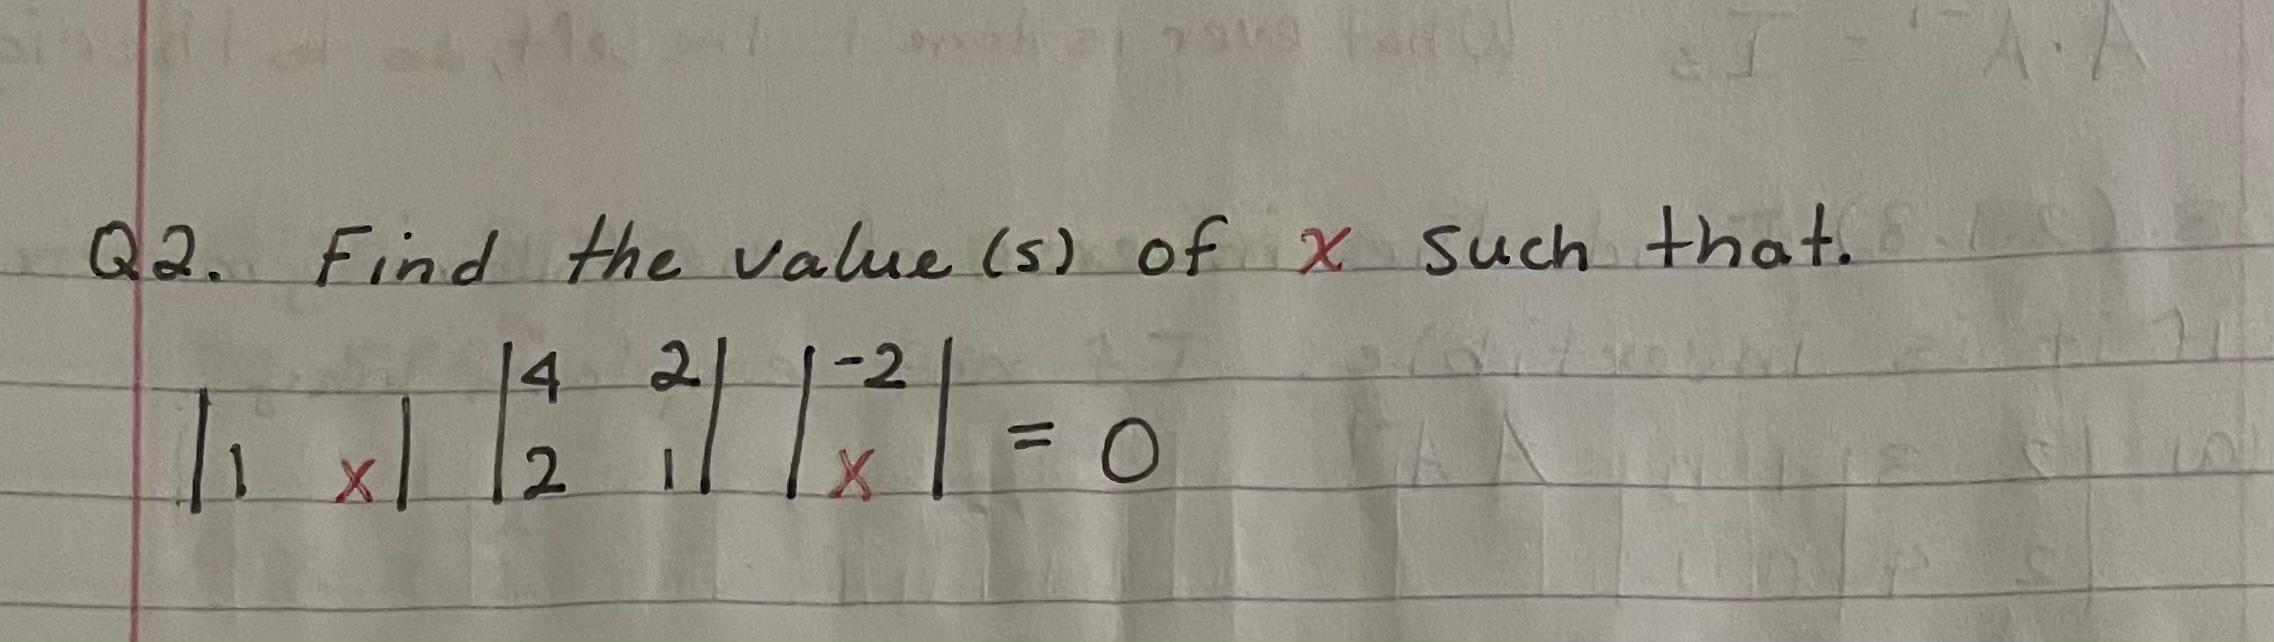 Q2. Find the value(s) of x such that.
|1 x| |4 2| |-2| = 0
|2 1| |x|